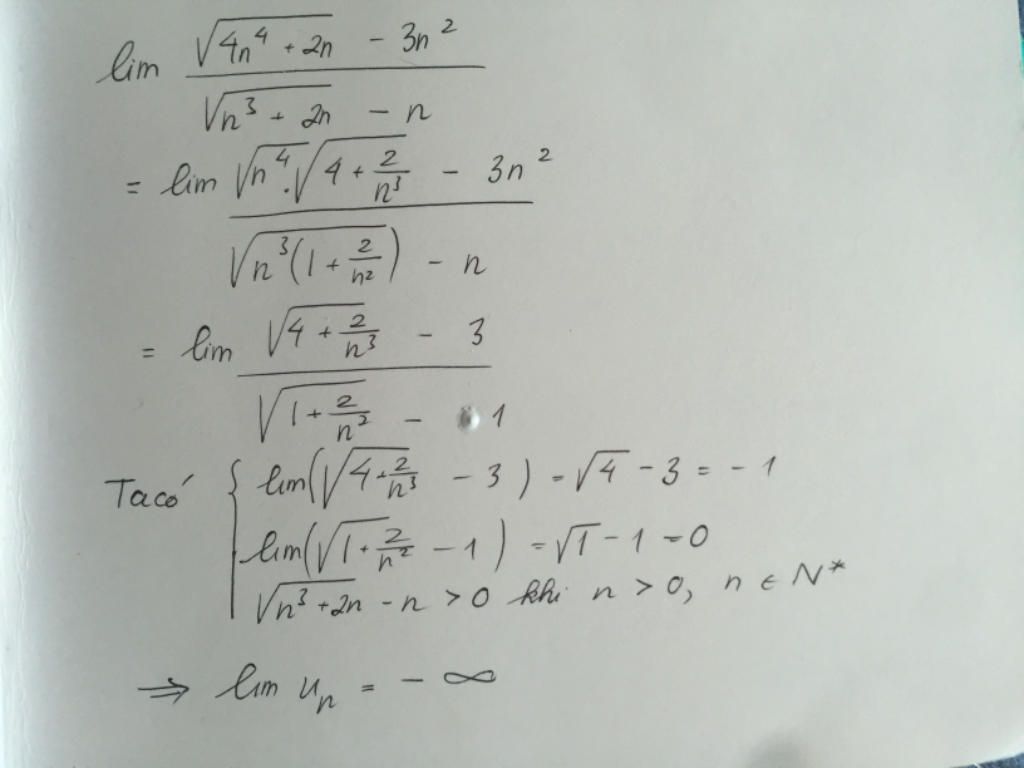 lim (√(4n⁴ + 2n) - 3n²) / (√(n³ + 2n) - n)
= lim (√n⁴ . √(4 + 2/n³) - 3n²) / (√(n³(1 + 2/n²)) - n)
= lim (√(4 + 2/n³) - 3) / (√(1 + 2/n²) - 1)
Ta có { lim(√(4 + 2/n³) - 3) = √4 - 3 = -1
lim(√(1 + 2/n²) - 1) = √1 - 1 = 0
√(n³ + 2n) - n > 0 khi n > 0, n ∈ N*
⇒ lim uₙ = - ∞